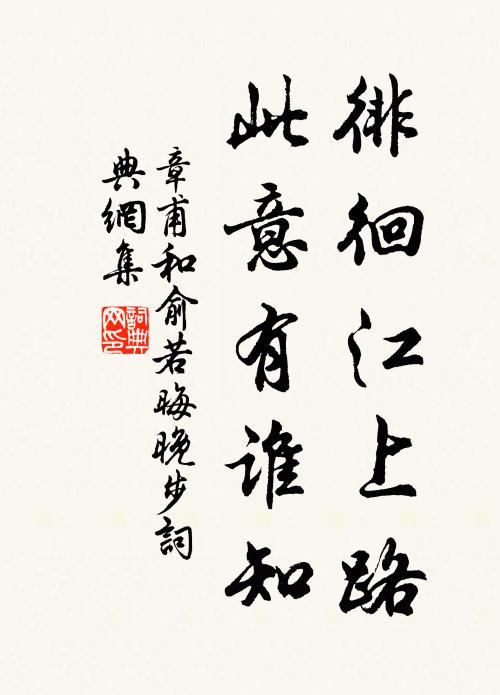 徘徊江上路
此意有谁知
章甫和俞若晦晚步詞
典網集
詞典网印